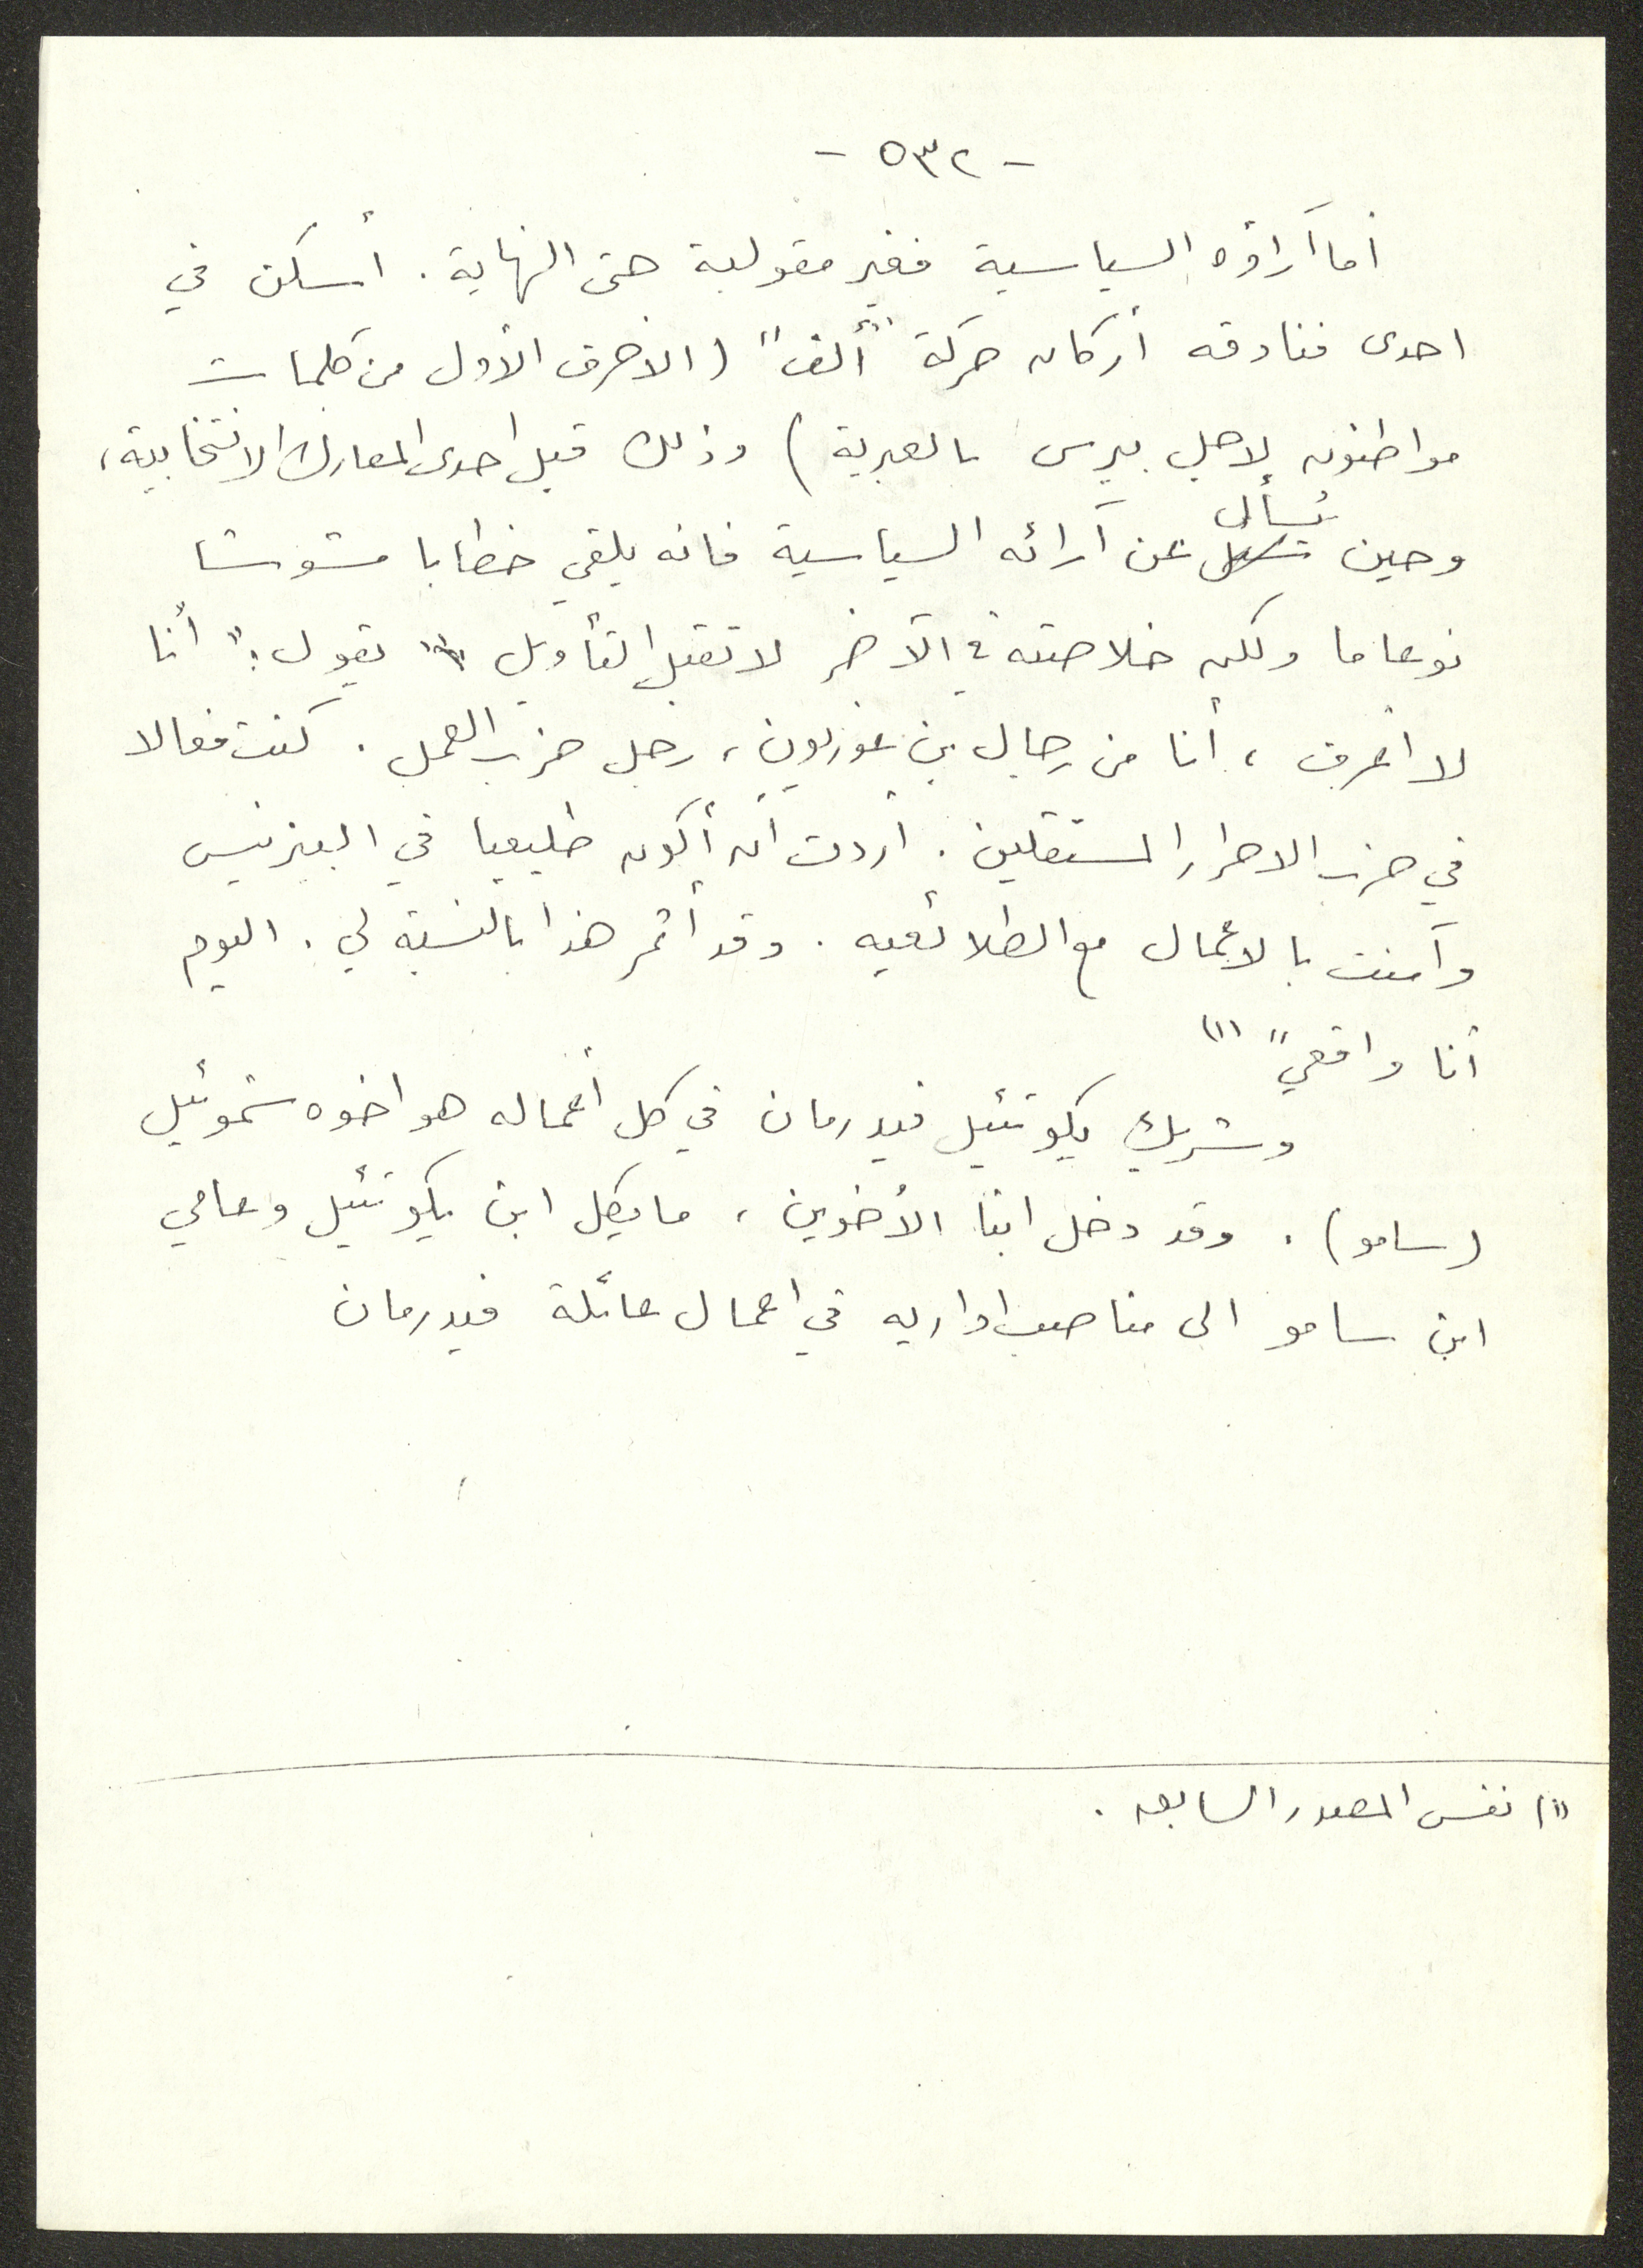 - ٥٣٢ -
أما آراؤه السياسية فغير مقولبة حتى النهاية. أسكن في
احدى فنادقه أركان حركة "ألف" (الاحرف الأول من كلمات
مواطنون لاجل بيرس بالعبرية) وذلك قبل احدى المعارك الانتخابية،
وحين يُسأل عن آرائه السياسية فانه يلقي خطابا مشوشا
نوعا ما ولكن خلاصته في الآخر لا تقبل التأويل يقول: "أنا
لا أعرف، أنا من رجال بن غوريون، رجل حزب العمل. كنت فعالا
في حزب الاحرار المستقلين. أردت أن أكون طليعيا في البيزنيس
وآمنت بالأعمال مع الطلائعيه. وقد أثمر هذا بالنسبة لي. اليوم
أنا واقعي" (١)
وشريك يكوتئيل فيدرمان في كل أعماله هو اخوه شموئيل
(سامو). وقد دخل ابنا الأخوين، مايكل ابن يكوتئيل وعامي
ابن سامو الى مناصب اداريه في اعمال عائلة فيدرمان
(١) نفس المصدر السابق.